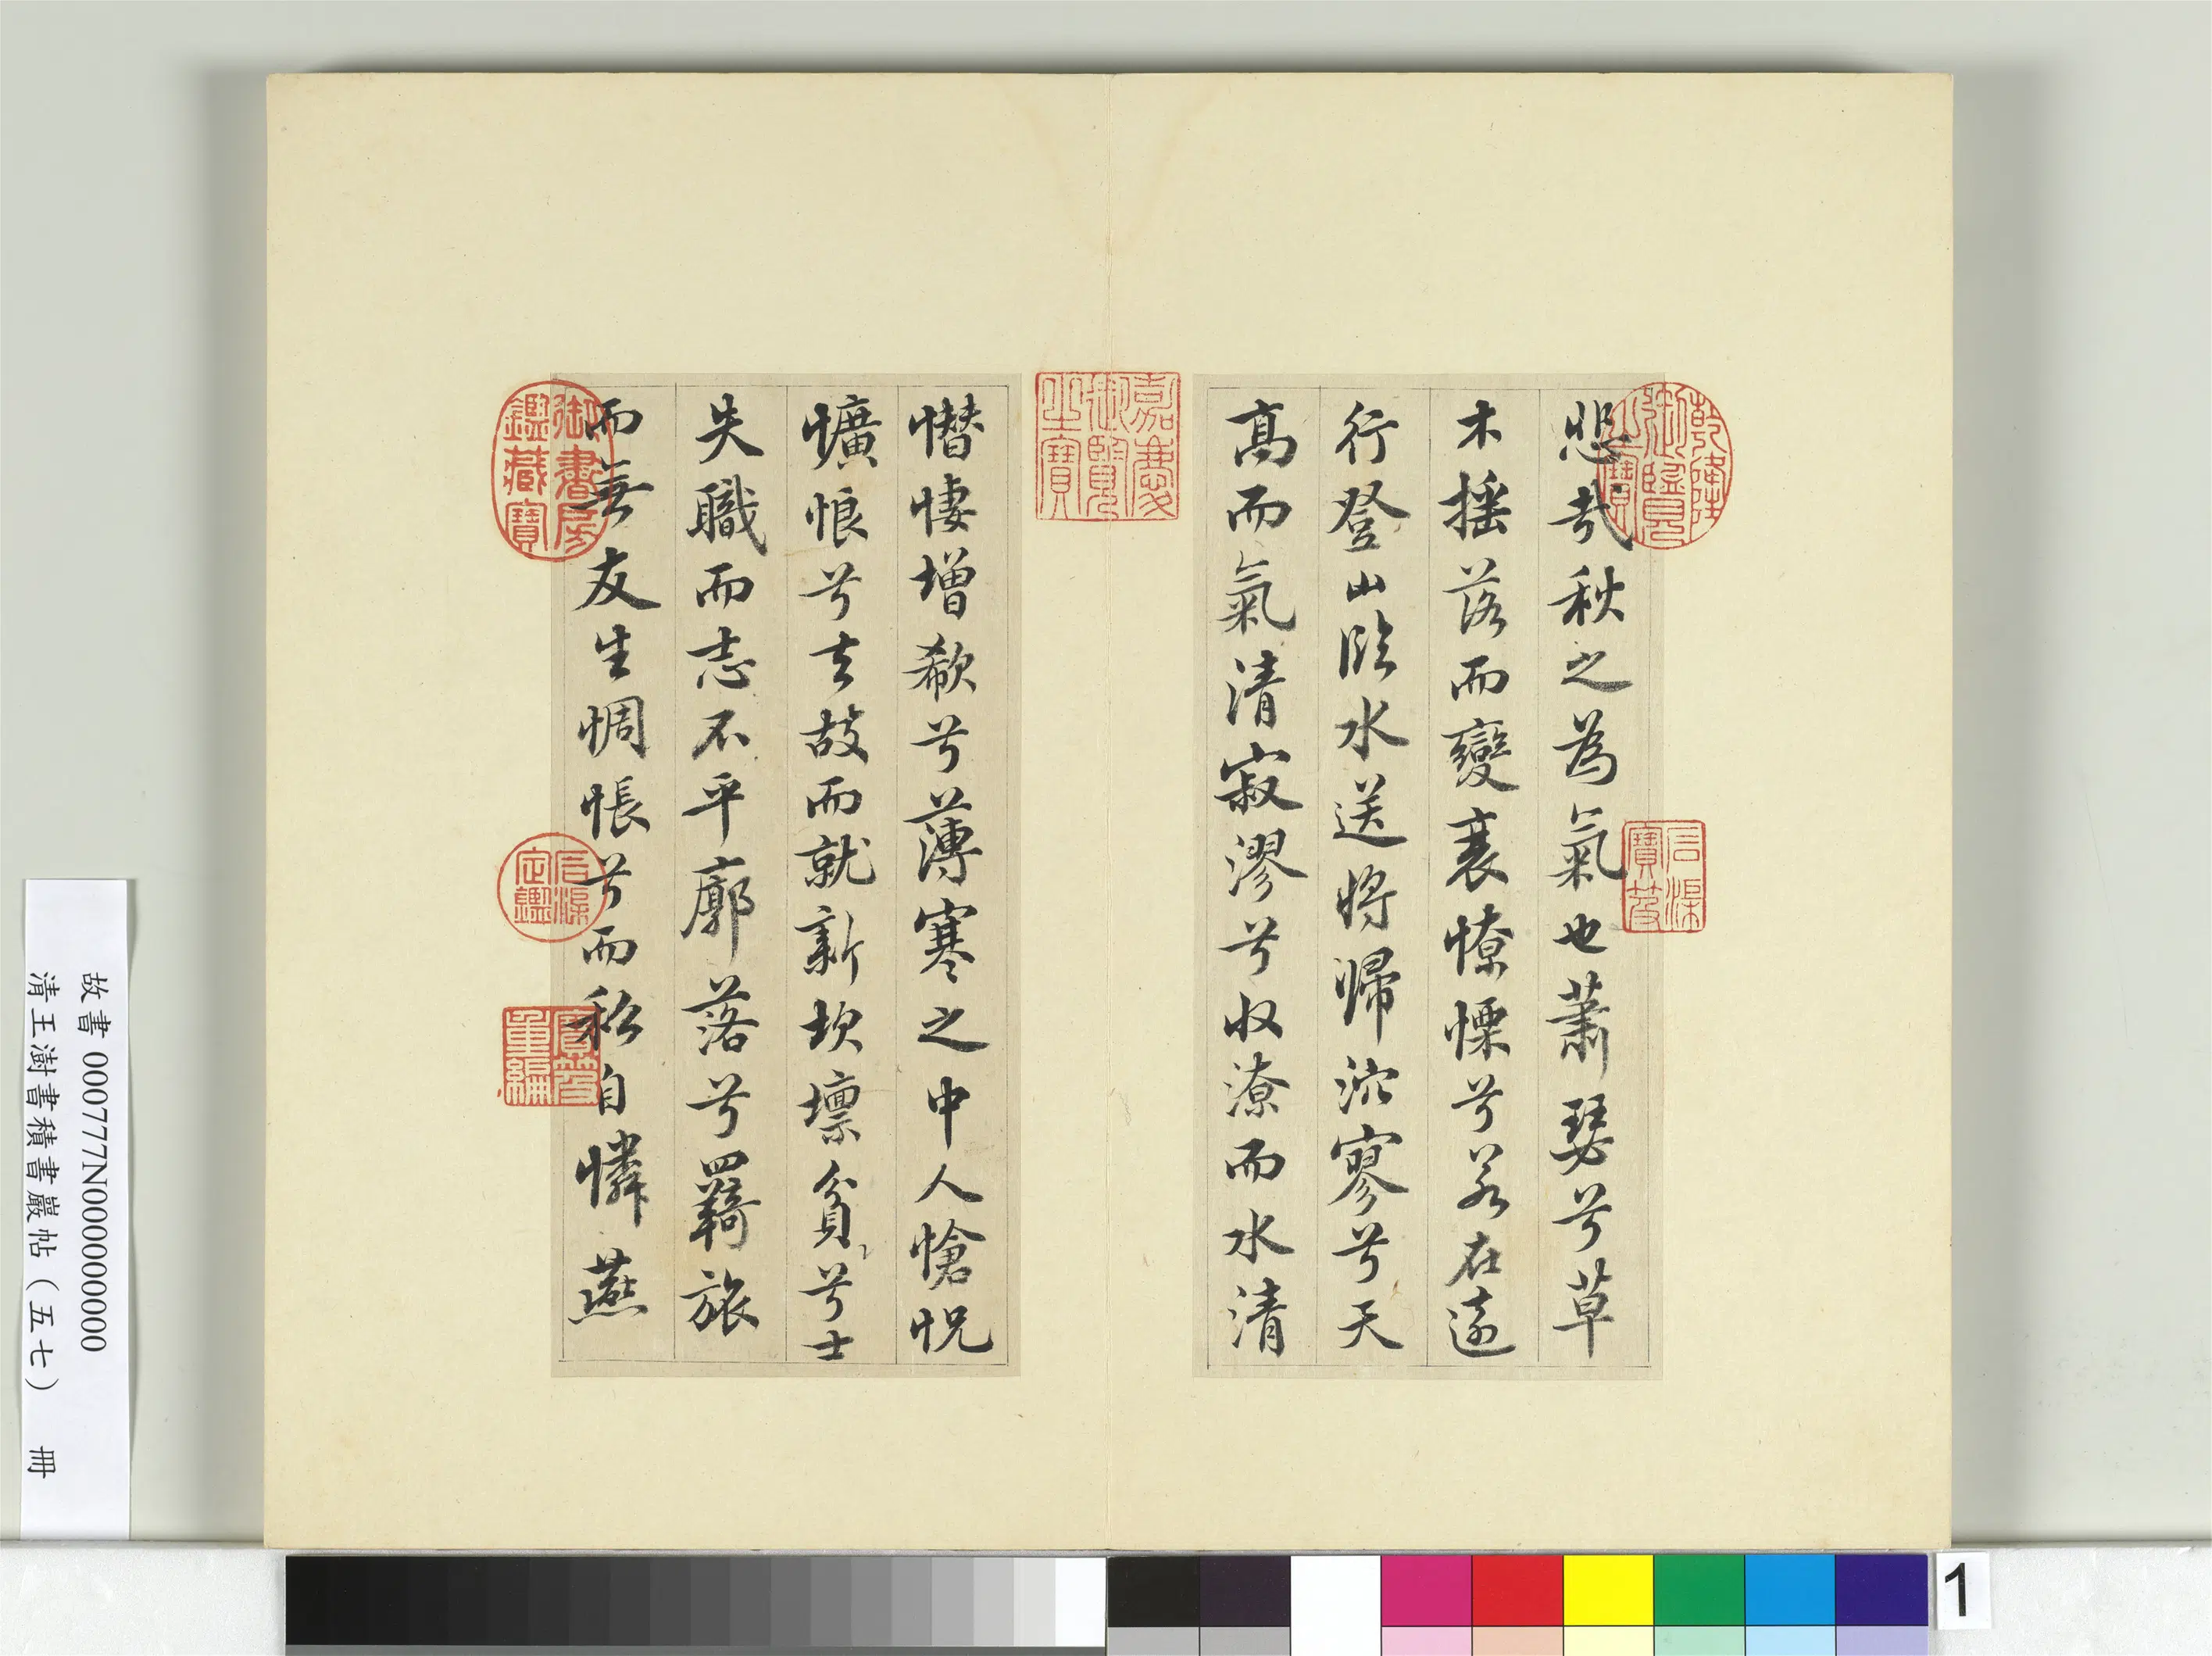 悲哉秋之為氣也蕭瑟兮草
木搖落而變衰憭慄兮若在遠
行登山臨水送將歸泬寥兮天
高而氣清寂漻兮收潦而水清
憯悽增欷兮薄寒之中人愴怳
懭悢兮去故而就新坎壈貧兮士
失職而志不平廓落兮羇旅
而無友生惆悵兮而私自憐燕
乾隆御覽之寶
石渠寶笈
嘉慶御覽之寶
御書房鑑藏寶
石渠定鑑
寶笈重編
故書 000777N000000000
清王澍書積書巖帖（五七） 冊
1